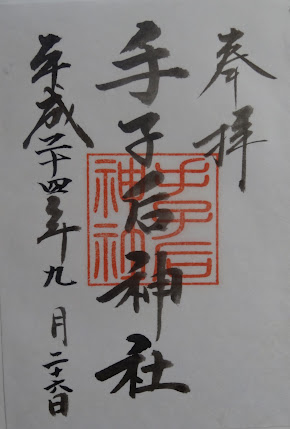 奉拝
手子后神社
手子后神社
平成二十四年九月二十六日